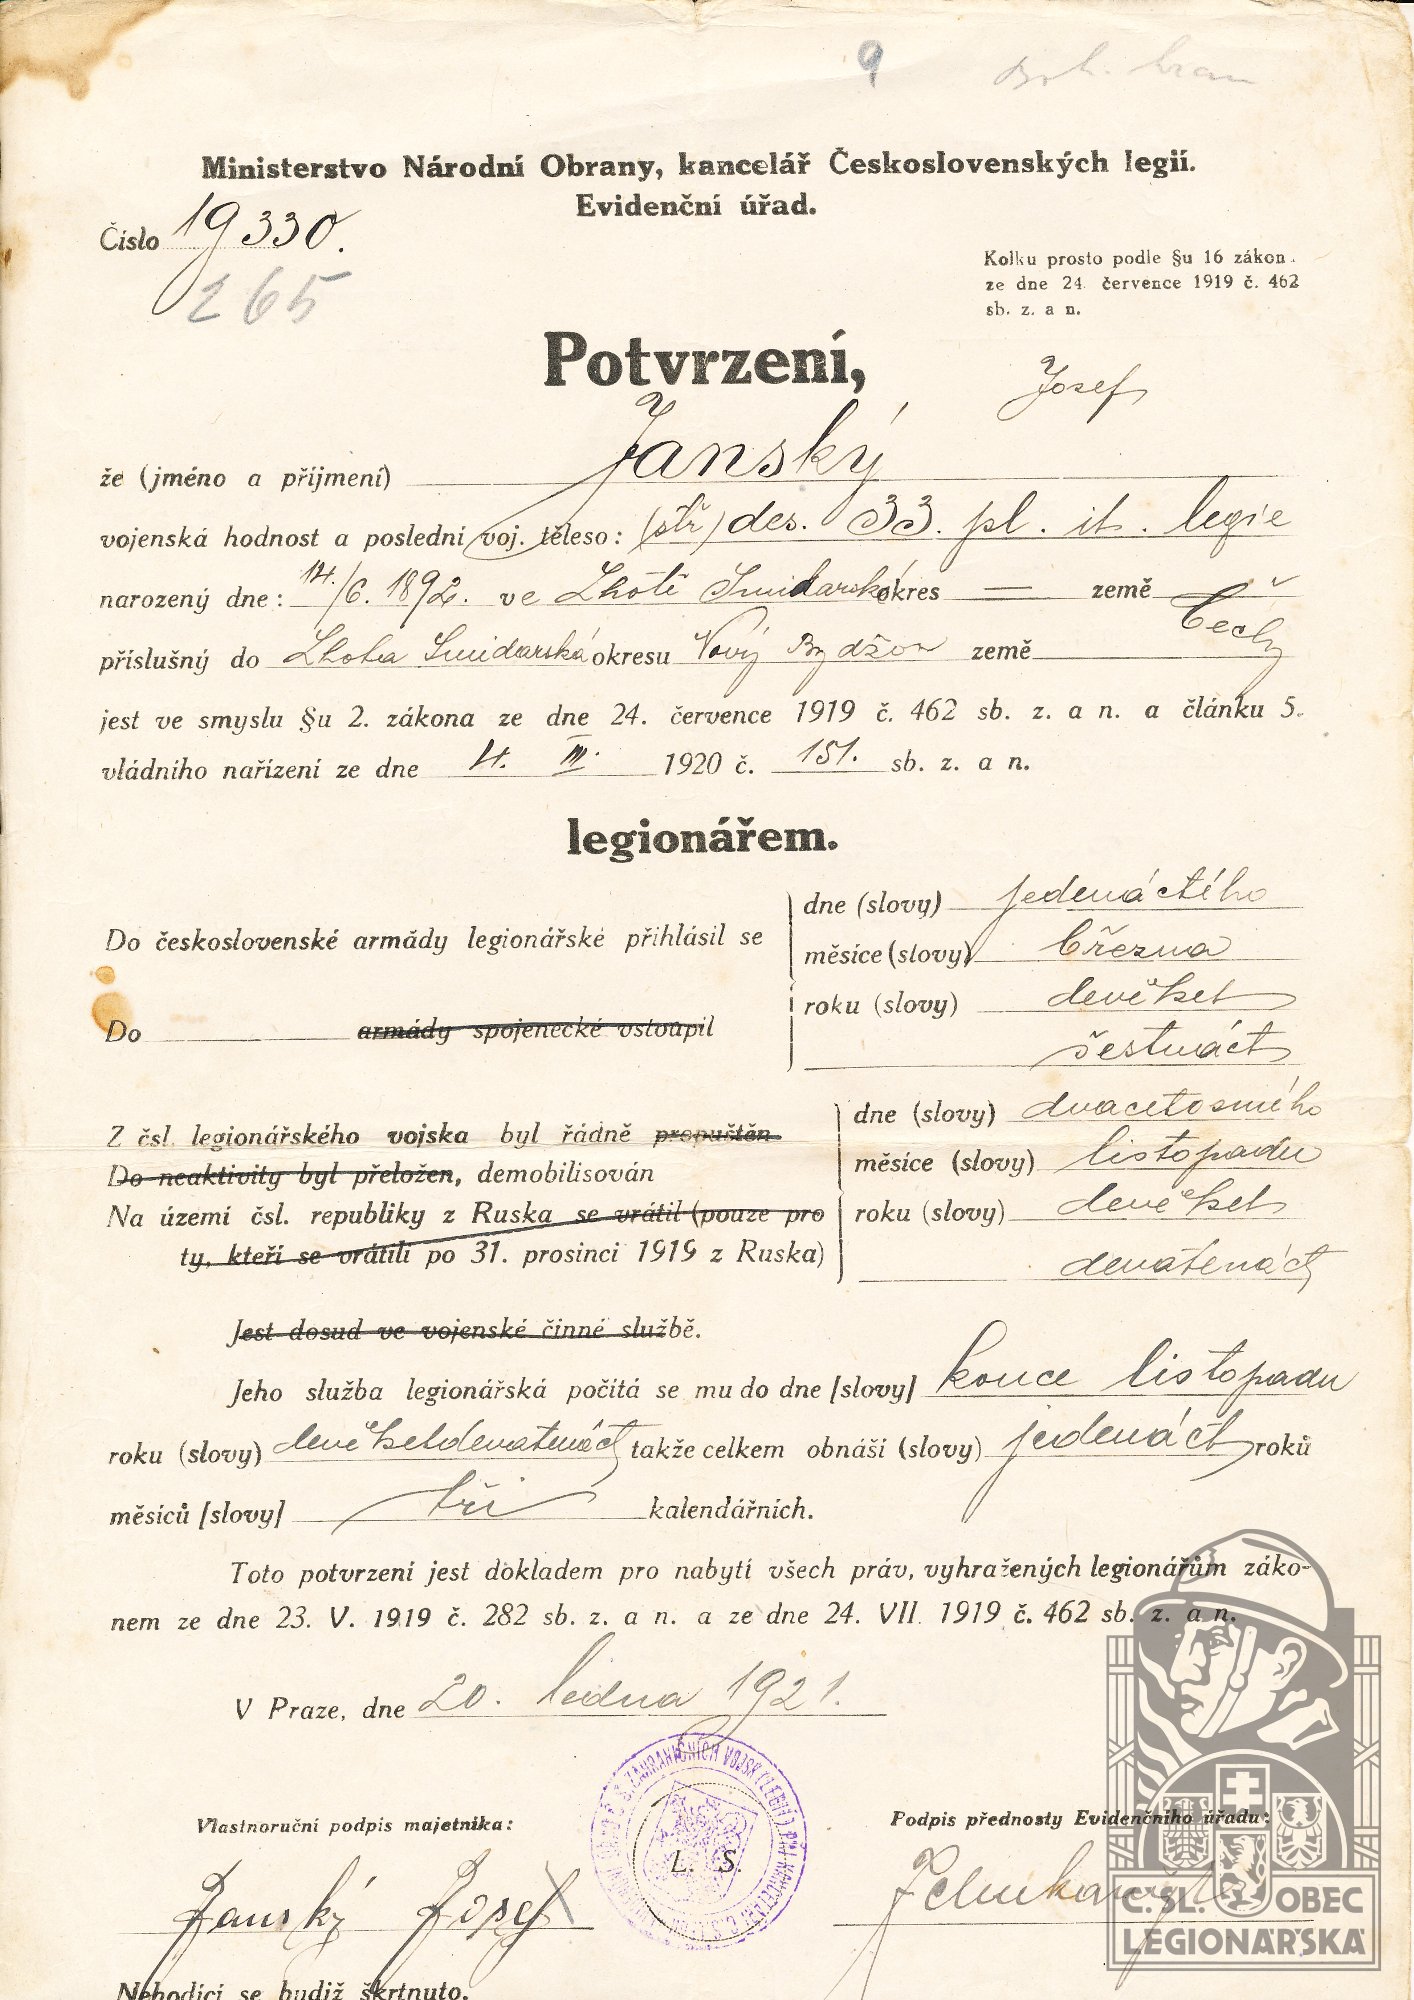 9
Ministerstvo Národní Obrany, kancelář Československých legií.
Evidenční úřad.
Číslo 19330.
265
Kolku prosto podle §u 16 zákon.
ze dne 24. července 1919 č. 462
sb. z. a n.
Potvrzení,
Josef
že (jméno a příjmení) Janský
vojenská hodnost a poslední voj. těleso: (stř) des. 33. pl. it. legie
narozený dne: 14./6. 1892. ve Lhotě Smidarské okres — země
příslušný do Lhota Smidarská okresu Nový Bydžov země Čechy
jest ve smyslu §u 2. zákona ze dne 24. července 1919 č. 462 sb. z. a n. a článku 5.
vládního nařízení ze dne 4. III. 1920 č. 151. sb. z. a n.
legionářem.
Do československé armády legionářské přihlásil se
dne (slovy) jedenáctého
měsíce (slovy) března
roku (slovy) devětset
šestnáct
Do armády spojenecké vstoupil
Z čsl. legionářského vojska byl řádně propuštěn
Do neaktivity byl přeložen, demobilisován
Na území čsl. republiky z Ruska se vrátil (pouze pro
ty, kteří se vrátili po 31. prosinci 1919 z Ruska)
dne (slovy) dvacetosmého
měsíce (slovy) listopadu
roku (slovy) devětset
devatenáct
Jest dosud ve vojenské činné službě.
Jeho služba legionářská počítá se mu do dne [slovy] konce listopadu
roku (slovy) devětsetdevatenáct takže celkem obnáší (slovy) jedenáct roků
měsíců [slovy] tři kalendářních.
Toto potvrzení jest dokladem pro nabytí všech práv, vyhražených legionářům záko-
nem ze dne 23. V. 1919 č. 282 sb. z. a n. a ze dne 24. VII. 1919 č. 462 sb. z. a n.
V Praze, dne 20. ledna 1921.
Vlastnoruční podpis majetníka:
Podpis přednosty Evidenčního úřadu:
L. S.
Janský Josef
Č. SL. OBEC
LEGIONÁŘSKÁ
Nehodící se budiž škrtnuto.